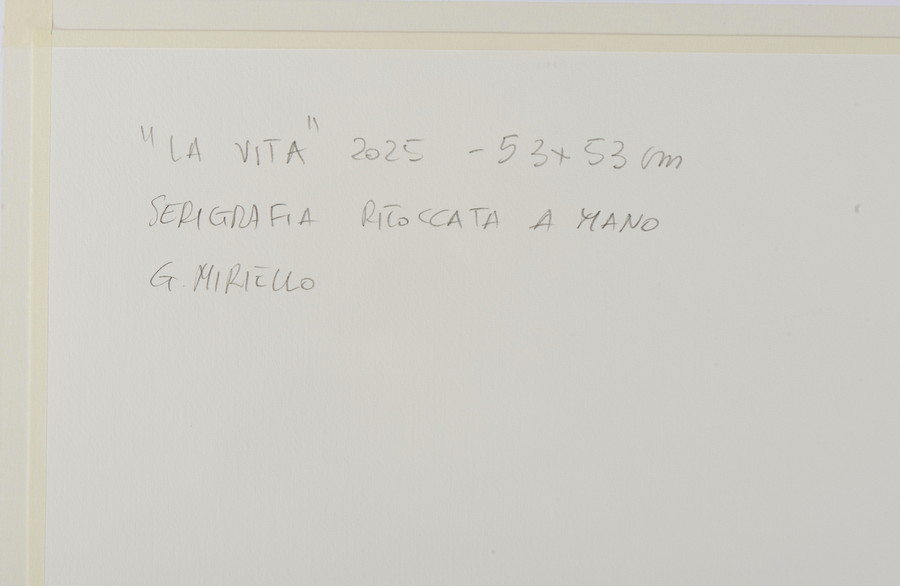 "LA VITA" 2025 - 53x53 cm
SERIGRAFIA RITOCCATA A MANO
G. MIRIELLO